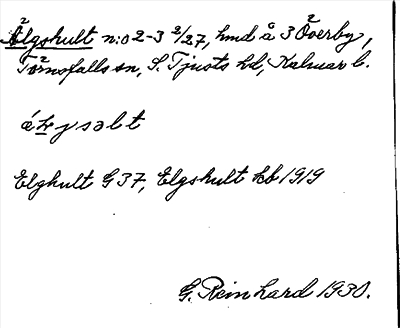 Älgshult n:o 2-3 2/27, hmd å 3 Överby,
Törnsfalls sn, S. Tjusts hd, Kalmar l.
Elghult G 37, Elgshult kb 1919
G. Reinhard 1930.